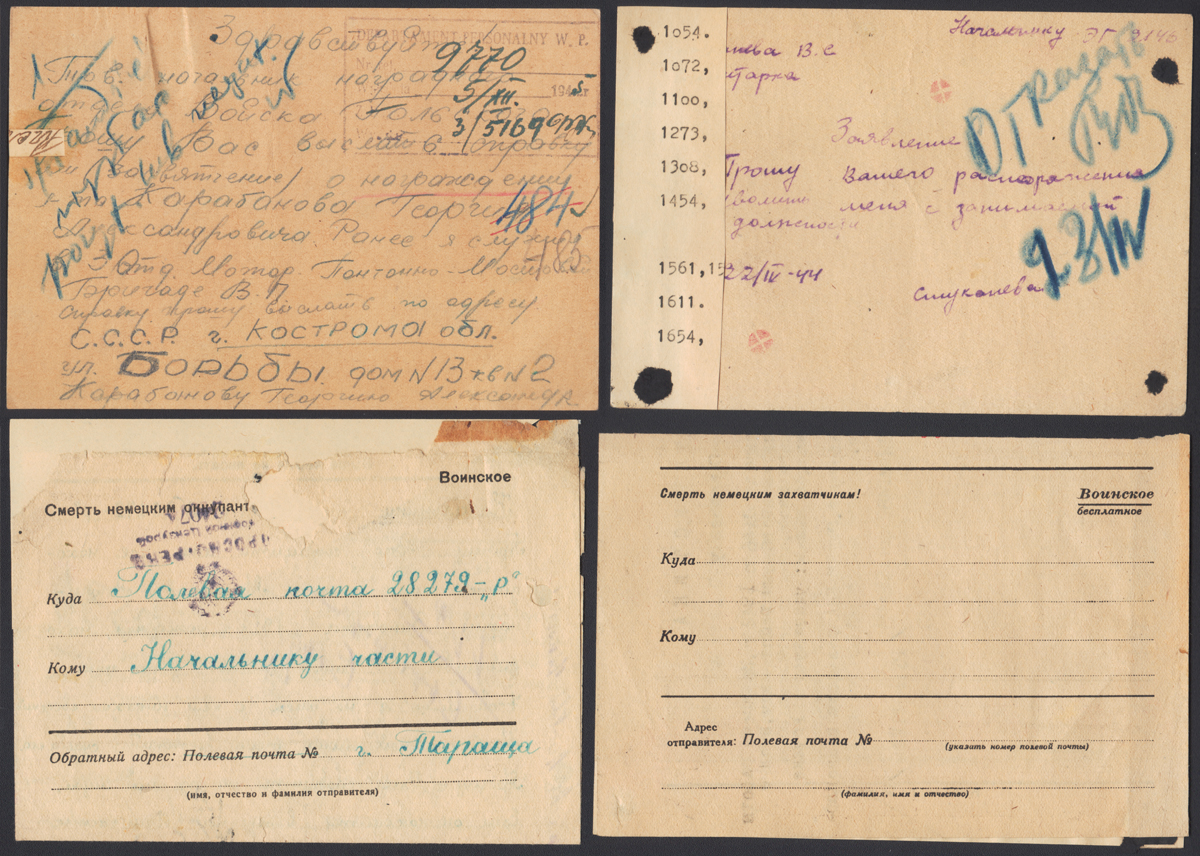 Здравствуйте
DEPARTMENT PERSONALNY W. P.
9770
5/XII. 1945 г
3/5169
Тов. начальник наградного
отдела Войска Польского
Прошу Вас выслать справку
о награждении
Карабанова Георгия
484
Александровича Ранее я служил
Отд. Мотор Понтонно-Мостовой
785
Бригаде В.П.
Справку прошу выслать по адресу
С.С.С.Р. г. КОСТРОМА обл.
ул. БОРЬБЫ дом N 13 кв N 2
Карабанову Георгию Александр
1054.
1072,
1100,
1273,
1308,
1454,
1561,15
1611.
1654,
Начальнику ЭГ 3146
ева В.С
Отказать
Заявление
Прошу вашего распоряжения
меня с занимаемой
должности
23/IV
22/IV-44
Стуканева
Воинское
Смерть немецким оккупант
ПРОСМОТРЕНО
Военной Цензурой
Куда Полевая почта 28279-„Р"
Кому Начальнику части
Обратный адрес: Полевая почта № г. Тараща
(имя, отчество и фамилия отправителя)
Смерть немецким захватчикам!
Воинское
бесплатное
Куда
Кому
Адрес
отправителя: Полевая почта №
(указать номер полевой почты)
(фамилия, имя и отчество)